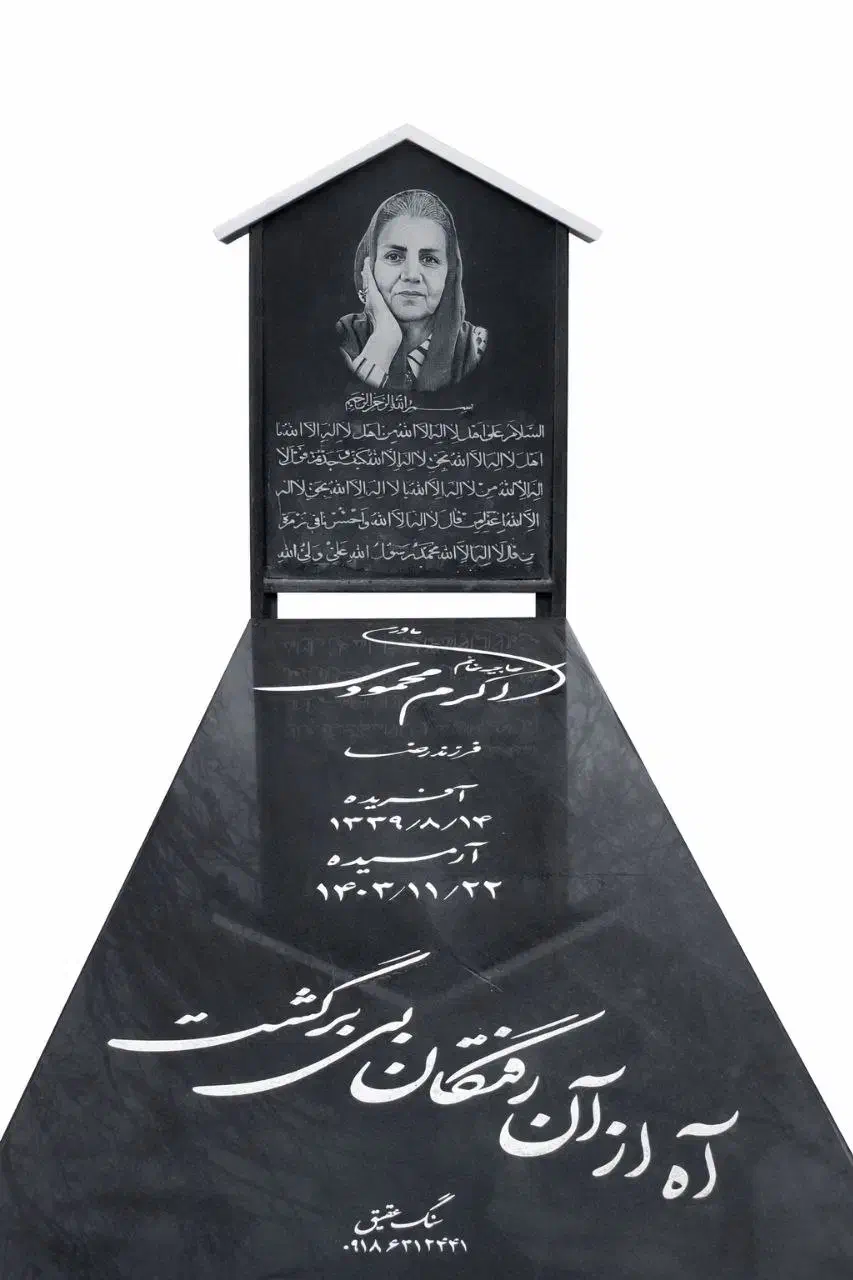 بسم الله الرحمن الرحیم
السلام علی اهل لا اله الا الله من اهل لا اله الا الله یا
اهل لا اله الا الله بحق لا اله الا الله کیف وجدتم قول لا
اله الا الله من لا اله الا الله یا لا اله الا الله بحق لا اله
الا الله اغفر لمن قال لا اله الا الله و احشرنا فی زمرة
من قال لا اله الا الله محمد رسول الله علی ولی الله
مادری
حاجیه خانم
اکرم محمودی
فرزند رضا
آفریده
۱۳۳۹/۸/۱۴
آرمیده
۱۴۰۳/۱۱/۲۲
آه از آن رفتگان بی برگشت
سنگ عقیق
۰۹۱۸ ۶۳۱۲۴۴۱